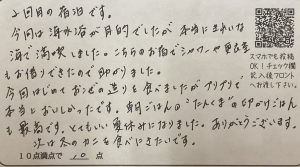 2回目の宿泊です。
今回は海水浴が目的でしたが本当にきれいな
海で満喫しました。こちらのお宿でシャワーや更衣室
もお借りできたので助かりました。
今回はじめてお宿の造りを食べましたがプリプリで
本当においしかったです。朝ごはんの"たんたま"の卵がけごはん
も最高です。とてもいい夏休みになりました。ありがとうございます。
次は冬のカニを食べにきたいです。
10点満点で 10 点
スマホでも投稿
OK!チェック欄
記入後フロント
へお渡し下さい。